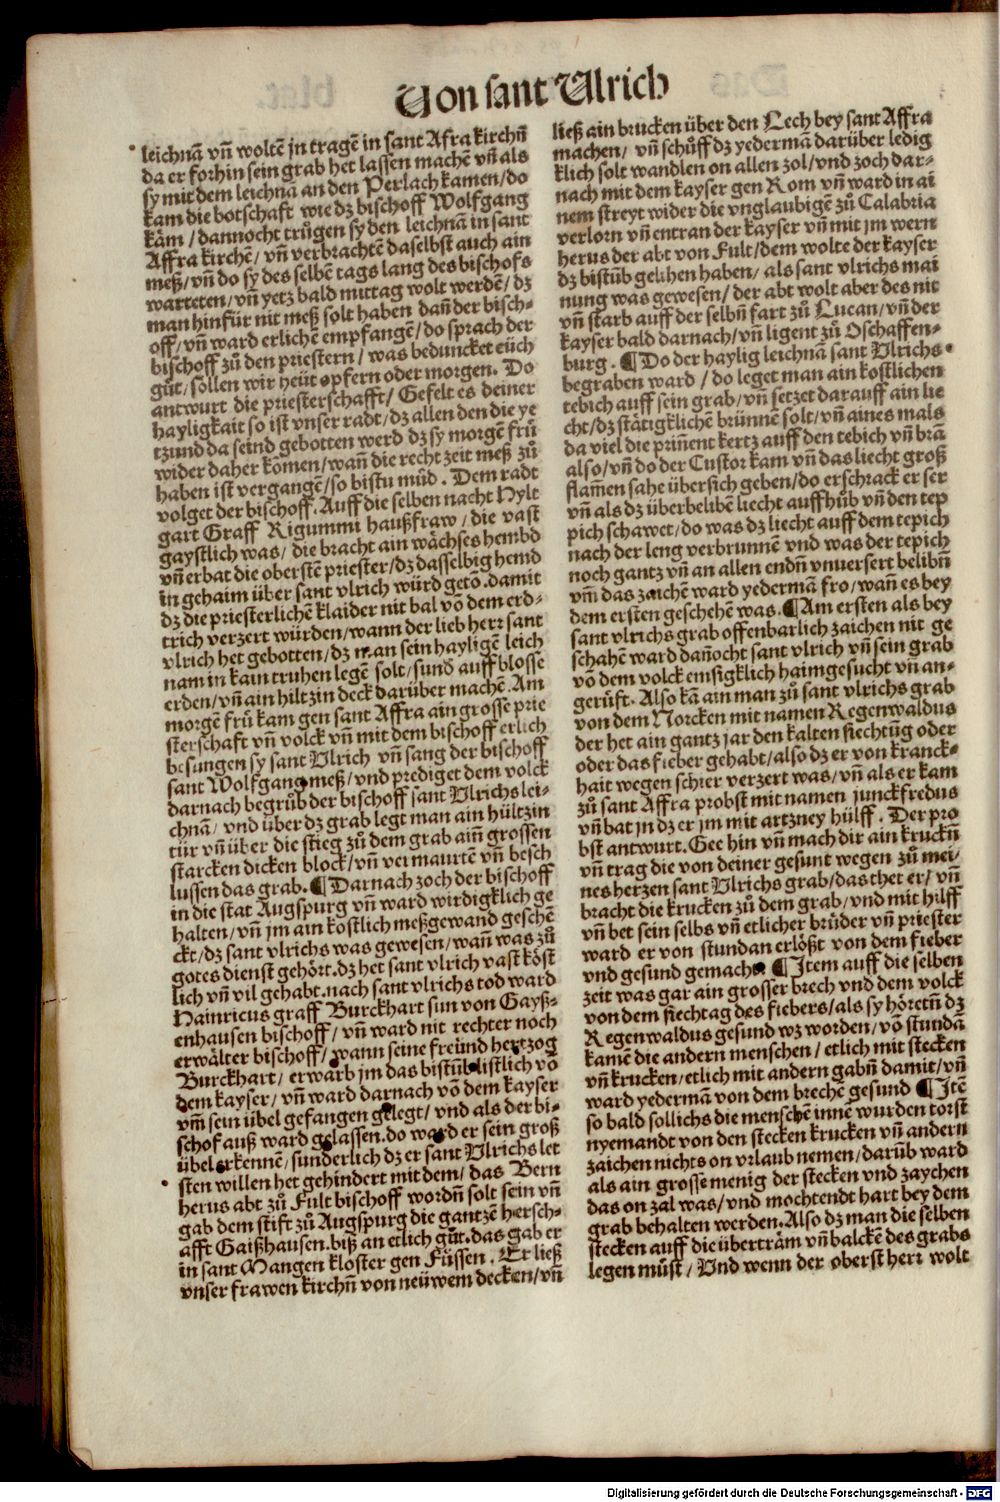 Von sant Ulrich
leichnā vn̄ woltē jn tragē in sant Afra kirchn̄
da er forhin sein grab het lassen machē vn̄ als
sy mit dem leichnā an den Perlach kamen/do
kam die botschaft wie dz bischoff Wolfgang
kām/dannocht trůgen sy den leichnā in sant
Affra kirchē/vn̄ verbrachtē daselbst auch ain
meß/vn̄ do sy des selbē tags lang des bischofs
warteten/vn̄ yetz bald mittag wolt werdē/dz
man hinfür nit meß solt haben dan̄ der bisch-
off/vn̄ ward erlichē empfangē/do sprach der
bischoff zů den priestern/was beduncket eüch
gůt/söllen wir heüt opfern oder morgen. Do
antwurt die priesterschafft/Gefelt es deiner
hayligkait so ist vnser radt/dz allen den die ye
tzund da seind gebotten werd dz sy morgē frů
wider daher komen/wan̄ die recht zeit meß zů
haben ist vergangē/so bistu müd. Dem radt
volget der bischoff. Auff die selben nacht Hylt
gart Graff Rigummi haußfraw/die vast
gaystlich was/die bracht ain wächses hembd
vn̄ erbat die oberstē priester/dz dasselbig hemd
in gehaim über sant vlrich würd getō.damit
dz die priesterlichē klaider nit bal vō dem erd-
trich verzert würden/wann der lieb herr sant
vlrich het gebotten/dz man sein hayligē leich
nam in kain truhen legē solt/sund̄ auff blosse
erden/vn̄ ain hiltzin deck darüber machē.Am
morgē frů kam gen sant Affra ain grosse prie
sterschaft vn̄ volck vn̄ mit dem bischoff erlich
besungen sy sant Ulrich vn̄ sang der bischoff
sant Wolfgang meß/vnd prediget dem volck
darnach begrůb der bischoff sant Ulrichs lei-
chnā/vnd über dz grab legt man ain hültzin
tür vn̄ über die stieg zů dem grab ain̄ grossen
starcken dicken block/vn̄ vermaurtē vn̄ besch
lussen das grab.¶Darnach zoch der bischoff
in die stat Augspurg vn̄ ward wirdigklich ge
halten/vn̄ jm ain kostlich meßgewand geschē
ckt/dz sant vlrichs was gewesen/wan̄ was zů
gotes dienst gehört.dz het sant vlrich vast köst
lich vn̄ vil gehabt.nach sant vlrichs tod ward
Hainricus graff Burckhart sun von Gayß-
enhausen bischoff/vn̄ ward nit rechter noch
erwälter bischoff/wann seine freünd hertzog
Burckhart/erwarb jm das bistūb listlich vō
dem kayser/vn̄ ward darnach vō dem kayser
vm̄ sein übel gefangen gelegt/vnd als der bi-
schof auß ward gelassen.do ward er sein groß
übel erkennē/sunderlich dz er sant Ulrichs let
sten willen het gehindert mit dem/das Bern
herus abt zů Fult bischoff wordn̄ solt sein vn̄
gab dem stift zů Augspurg die gantzē hersch-
afft Gaißhausen.biß an etlich gůt.das gab er
in sant Mangen kloster gen Füssen. Er ließ
vnser frawen kirchn̄ von neüwem decken/vn̄
ließ ain brucken über den Lech bey sant Affra
machen/vn̄ schůff dz yedermā darüber ledig
klich solt wandlen on allen zol/vnd zoch dar-
nach mit dem kayser gen Rom vn̄ ward in ai
nem streyt wider die vnglaubigē zů Calabria
verlorn vn̄ entran der kayser vn̄ mit jm wern
herus der abt von Fult/dem wolte der kayser
dz bistūb gelihen haben/als sant vlrichs mai
nung was gewesen/der abt wolt aber des nit
vn̄ starb auff der selbn̄ fart zů Lucan/vn̄ der
kayser bald darnach/vn̄ ligent zů Oschaffen-
burg.¶Do der haylig leichnā sant Ulrichs
begraben ward/do leget man ain kostlichen
tebich auff sein grab/vn̄ setzet darauff ain lie
cht/dz stätigklichē brünnen solt/vn̄ aines mals
da viel die prin̄ent kertz auff den tebich vn̄ brā
also/vn̄ do der Custor kam vn̄ das liecht groß
flam̄en sahe übersich geben/do erschrack er ser
vn̄ als dz überbelibē liecht auffhůb vn̄ den tep
pich schawet/do was dz liecht auff dem tepich
nach der leng verbrunnē vnd was der tepich
noch gantz vn̄ an allen endn̄ vnuersert belibn̄
vm̄ das zaichē ward yedermā fro/wan̄ es bey
dem ersten geschehē was.¶Am ersten als bey
sant vlrichs grab offenbarlich zaichen nit ge
schahē ward dan̄ocht sant vlrich vn̄ sein grab
vō dem volck emsigklich haimgesucht vn̄ an-
gerůft. Also kā ain man zů sant vlrichs grab
von dem Norcken mit namen Regenwaldus
der het ain gantz jar den kalten siechtūg oder
oder das fieber gehabt/also dz er von kranck-
hait wegen schier verzert was/vn̄ als er kam
zů sant Affra probst mit namen junckfredus
vn̄ bat jn dz er jm mit artzney hülff. Der pro
bst antwurt. Gee hin vn̄ mach dir ain kruckn̄
vn̄ trag die von deiner gesunt wegen zů mei/
nes herzen sant Ulrichs grab/das thet er/vn̄
bracht die krucken zů dem grab/vnd mit hilff
vn̄ bet sein selbs vn̄ etlicher brüder vn̄ priester
ward er von stundan erlößt von dem fieber
vnd gesund gemacht ¶Item auff die selben
zeit was gar ain grosser brech vnd dem volck
von dem siechtag des fiebers/als sy höretn̄ dz
Regenwaldus gesund wz worden/vō stundā
kamē die andern menschen/etlich mit stecken
vn̄ krucken/etlich mit andern gabn̄ damit/vn̄
ward yedermā von dem brechē gesund ¶Itē
so bald sollichs die menschē innē wurden torst
nyemandt von den stecken krucken vn̄ andern
zaichen nichts on vrlaub nemen/darūb ward
als ain grosse menig der stecken vnd zaychen
das on zal was/vnd mochtendt hart bey dem
grab behalten werden.Also dz man die selben
stecken auff die überträm vn̄ balckē des grabs
legen müst/Und wenn der oberst herr wolt
Digitalisierung gefördert durch die Deutsche Forschungsgemeinschaft - DFG